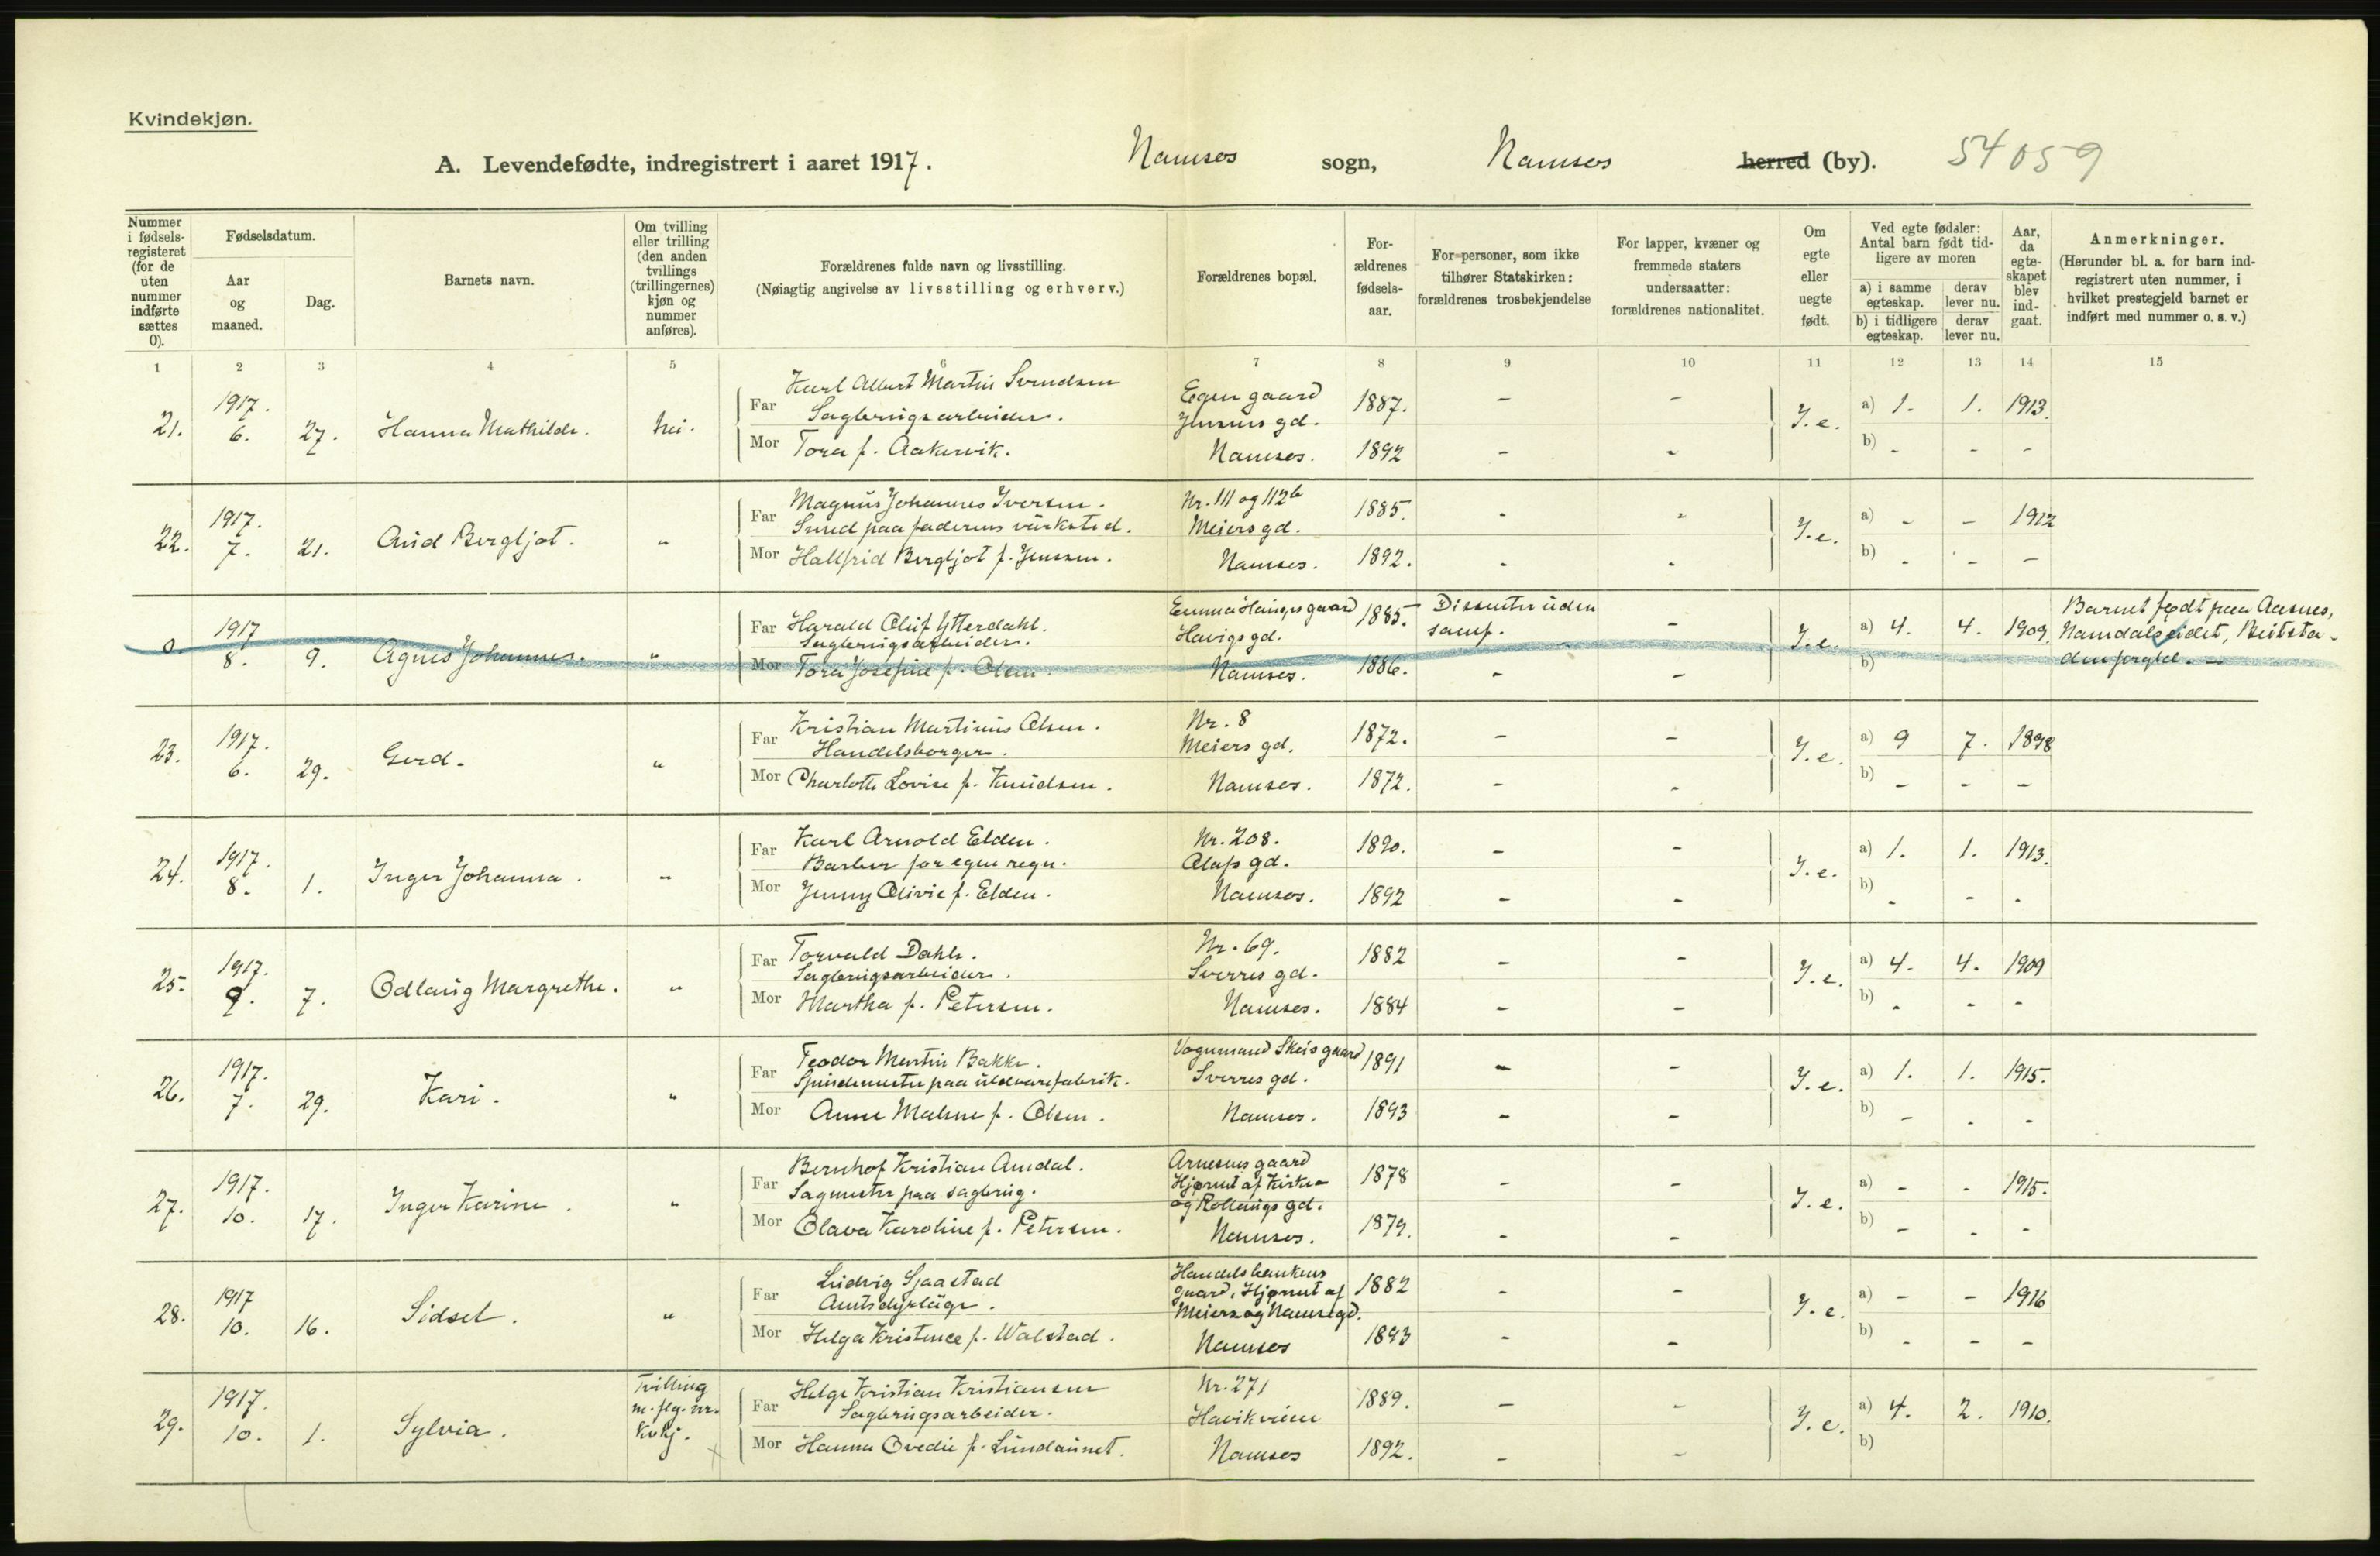 Kvindekjøn.
A. Levendefødte, indregistrert i aaret 1917. Namsos sogn, Namsos herred (by). 54059
Nummer i fødsels-registeret (for de uten nummer indførte sættes 0).
Fødselsdatum.
Aar og maaned.
Dag.
Barnets navn.
Om tvilling eller trilling (den anden tvillings (trillingernes) kjøn og nummer anføres).
Forældrenes fulde navn og livsstilling.
(Nøiagtig angivelse av livsstilling og erhverv.)
Forældrenes bopæl.
For-ældrenes fødsels-aar.
For personer, som ikke tilhører Statskirken: forældrenes trosbekjendelse
For lapper, kvæner og fremmede staters undersaatter: forældrenes nationalitet.
Om egte eller uegte født.
Ved egte fødsler: Antal barn født tid-ligere av moren
a) i samme egteskap. derav lever nu.
b) i tidligere egteskap. derav lever nu.
Aar, da egte-skapet blev ind-gaat.
Anmerkninger.
(Herunder bl. a. for barn ind-registrert uten nummer, i hvilket prestegjeld barnet er indført med nummer o. s. v.)
1 2 3 4 5 6 7 8 9 10 11 12 13 14 15
Karl Albert Martin Svendsen Egen gaard
1917. Far Sagbrugsarbeider. Jensens gd. 1887. - - a) 1. 1. 1913.
21. 6. 27. Hanna Mathilde. Nei. Y.e.
Mor Tora f. Aakervik. Namsos. 1892 - - b) - - -
Magnus Johannes Iversen. Nr. 111 og 112b
1917. Far Smed paa faderens verksted. Meiers gd. 1885. - - a) - - 1912
22. 7. 21. Aud Bergljot. " Y.e.
Mor Hallfrid Bergljot f. Jensen. Namsos. 1892. - - b) - - -
Emma Haugs gaard Dissenter uden Barnet født paa Aasnes,
1917 Far Harald Oluf Ytterdahl. Havigs gd. 1885. samf. - a) 4. 4. 1909. Namdalseidet, Beitsta-
0 8. 9. Agnes Johannes. " Sagbrugsarbeider. Y.e.
Mor Tora Josefine f. Olsen. Namsos. 1886. - - b) den prgjld. -
Kristian Martinus Olsen. Nr. 8
1917. Far Handelsborger. Meiers gd. 1872. - - a) 9 7. 1898
23. 6. 29. Gerd. " Y.e.
Mor Charlotte Lovise f. Knudsen. Namsos. 1872. - - b) - - -
Karl Arnold Elden. Nr. 208.
1917. Far Barber for egen regn. Olafs gd. 1890. - - a) 1. 1. 1913.
24. 8. 1. Inger Johanna. " Y.e.
Mor Jenny Olivie f. Elden. Namsos. 1892 - - b) - - -
Torvald Dahle. Nr. 69.
1917. Far Sagbrugsarbeider. Sverres gd. 1882 - - a) 4. 4. 1909
25. 9. 7. Odlaug Margrethe. " Y.e.
Mor Martha f. Petersen. Namsos. 1884 - - b) - - -
Teodor Martin Bakke. Vognmand Skeis gaard
1917. Far Spindemester paa uldvarefabrik. Sverres gd. 1891 - - a) 1. 1. 1915.
26. 7. 29. Kari. " Y.e.
Mor Anne Malene f. Olsen. Namsos. 1893 - - b) - - -
Bernhof Kristian Amdal. Arnesens gaard
1917. Far Sagmester paa sagbrug. Hjørnet af Kirke- 1878 - - a) - - 1915.
27. 10. 17. Inger Karine. " og Rollaugs gd. Y.e.
Mor Olava Karoline f. Petersen. Namsos. 1879. - - b) - - -
Ludvig Sjaastad Handelsbankens
1917 Far Amtsdyrlæge. gaard, Hjørnet af 1882 - - a) - - 1916
28. 10. 16. Sidsel. " Meiers og Namse gd. Y.e.
Mor Helga Kristence f. Walstad. Namsos 1893 - - b) - - -
Tvilling Helge Kristian Kristiansen Nr. 271
1917. m. flg. nr. Far Sagbrugsarbeider. Havikveien 1889. - - a) 4. 2. 1910.
29. 10. 1. Sylvia. Kvkj. Y.e.
Mor Hanna Ovedie f. Lundaunet. Namsos 1892. - - b)